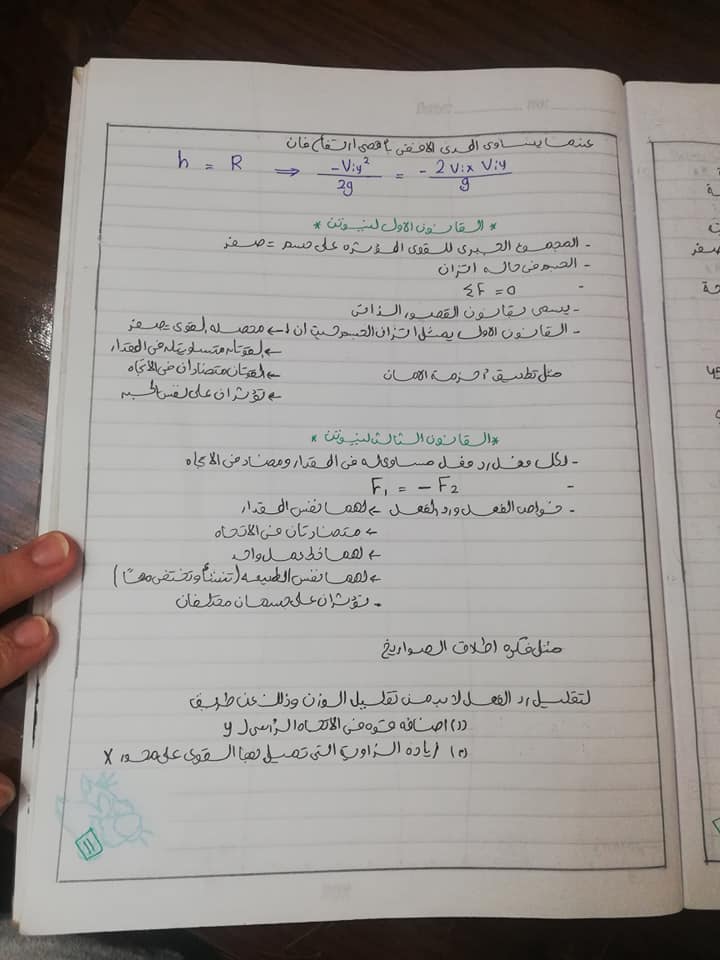 عندما يتساوى المدى الافقى بأقصى ارتفاع فان
h = R ⟹ -Viy²/2g = -2 Vix Viy/g
* القانون الاول لنيوتن *
- المجموع الجبرى للقوى المؤثره على جسم = صفر
- الجسم فى حاله اتزان
- ΣF = 0
- يسمى بقانون القصور الذاتى
- القانون الاول يمثل اتزان الجسم حيث ان ← محصله القوى = صفر
← القوتان متساويتان فى المقدار
مثل تطبيق أحزمة الامان ← القوتان متضادان فى الاتجاه
← تؤثران على نفس الجسم
* القانون الثالث لنيوتن *
- لكل فعل رد فعل مساوى له فى المقدار ومضاد فى الاتجاه
- F₁ = - F₂
- خواص الفعل ورد الفعل ← لهما نفس المقدار
← متضادتان فى الاتجاه
← لهما خط عمل واحد
← لهما نفس الطبيعه (تنشأ وتختفى معًا)
- تؤثران على جسمان مختلفان
مثل فكره اطلاق الصواريخ
لتقليل رد الفعل لابد من تقليل الوزن وذلك عن طريق
(١) اضافه قوه فى الاتجاه الرأسى لـ y
(٢) زياده الزاويه التى تميل بها القوى على محور X
11